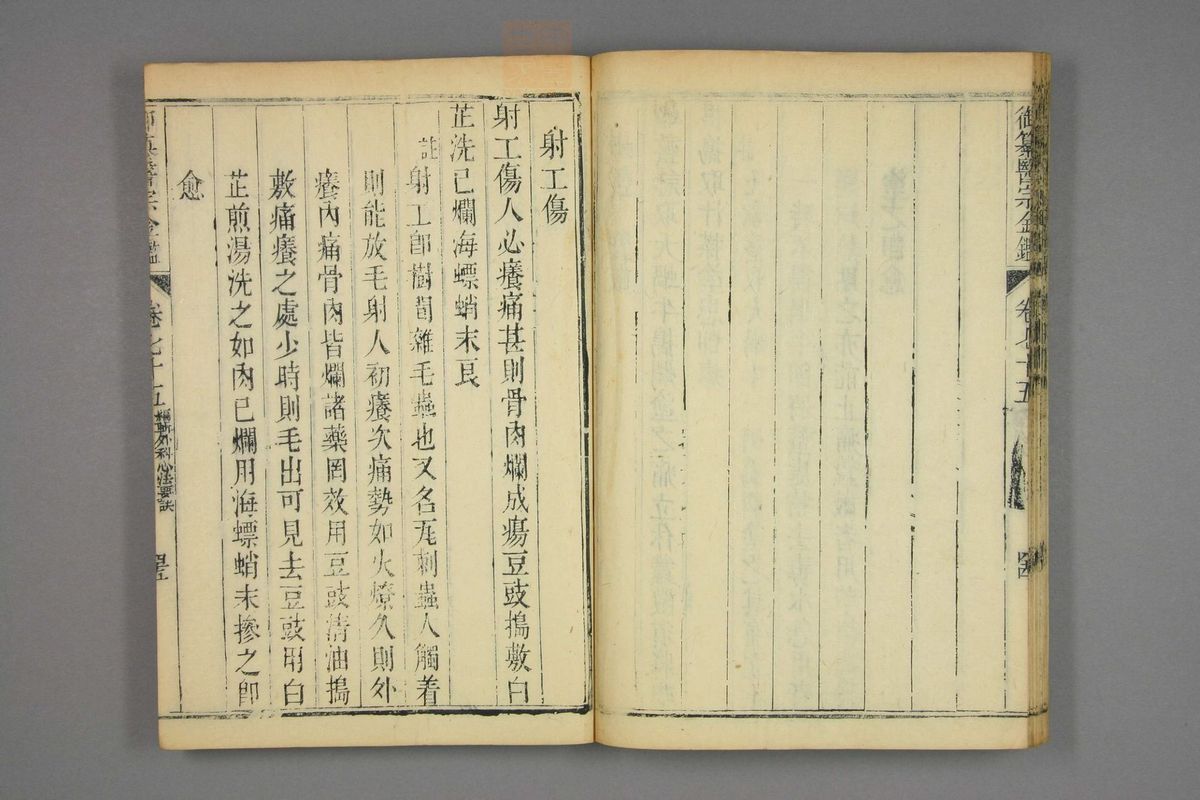 御纂醫宗金鑑 卷七十五
射工傷
射工傷人必癢痛甚則骨肉爛成瘍豆豉搗敷白
芷洗已爛海螵蛸末良
註射工卽樹間雜毛蟲也又名瓦刺蟲人觸着
則能放毛射人初癢次痛勢如火燎久則外
癢內痛骨肉皆爛諸藥罔效用豆豉淸油搗
敷痛癢之處少時則毛出可見去豆豉用白
芷煎湯洗之如肉已爛用海螵蛸末摻之卽
愈
御纂醫宗金鑑 卷七十五 編輯外科心法要訣